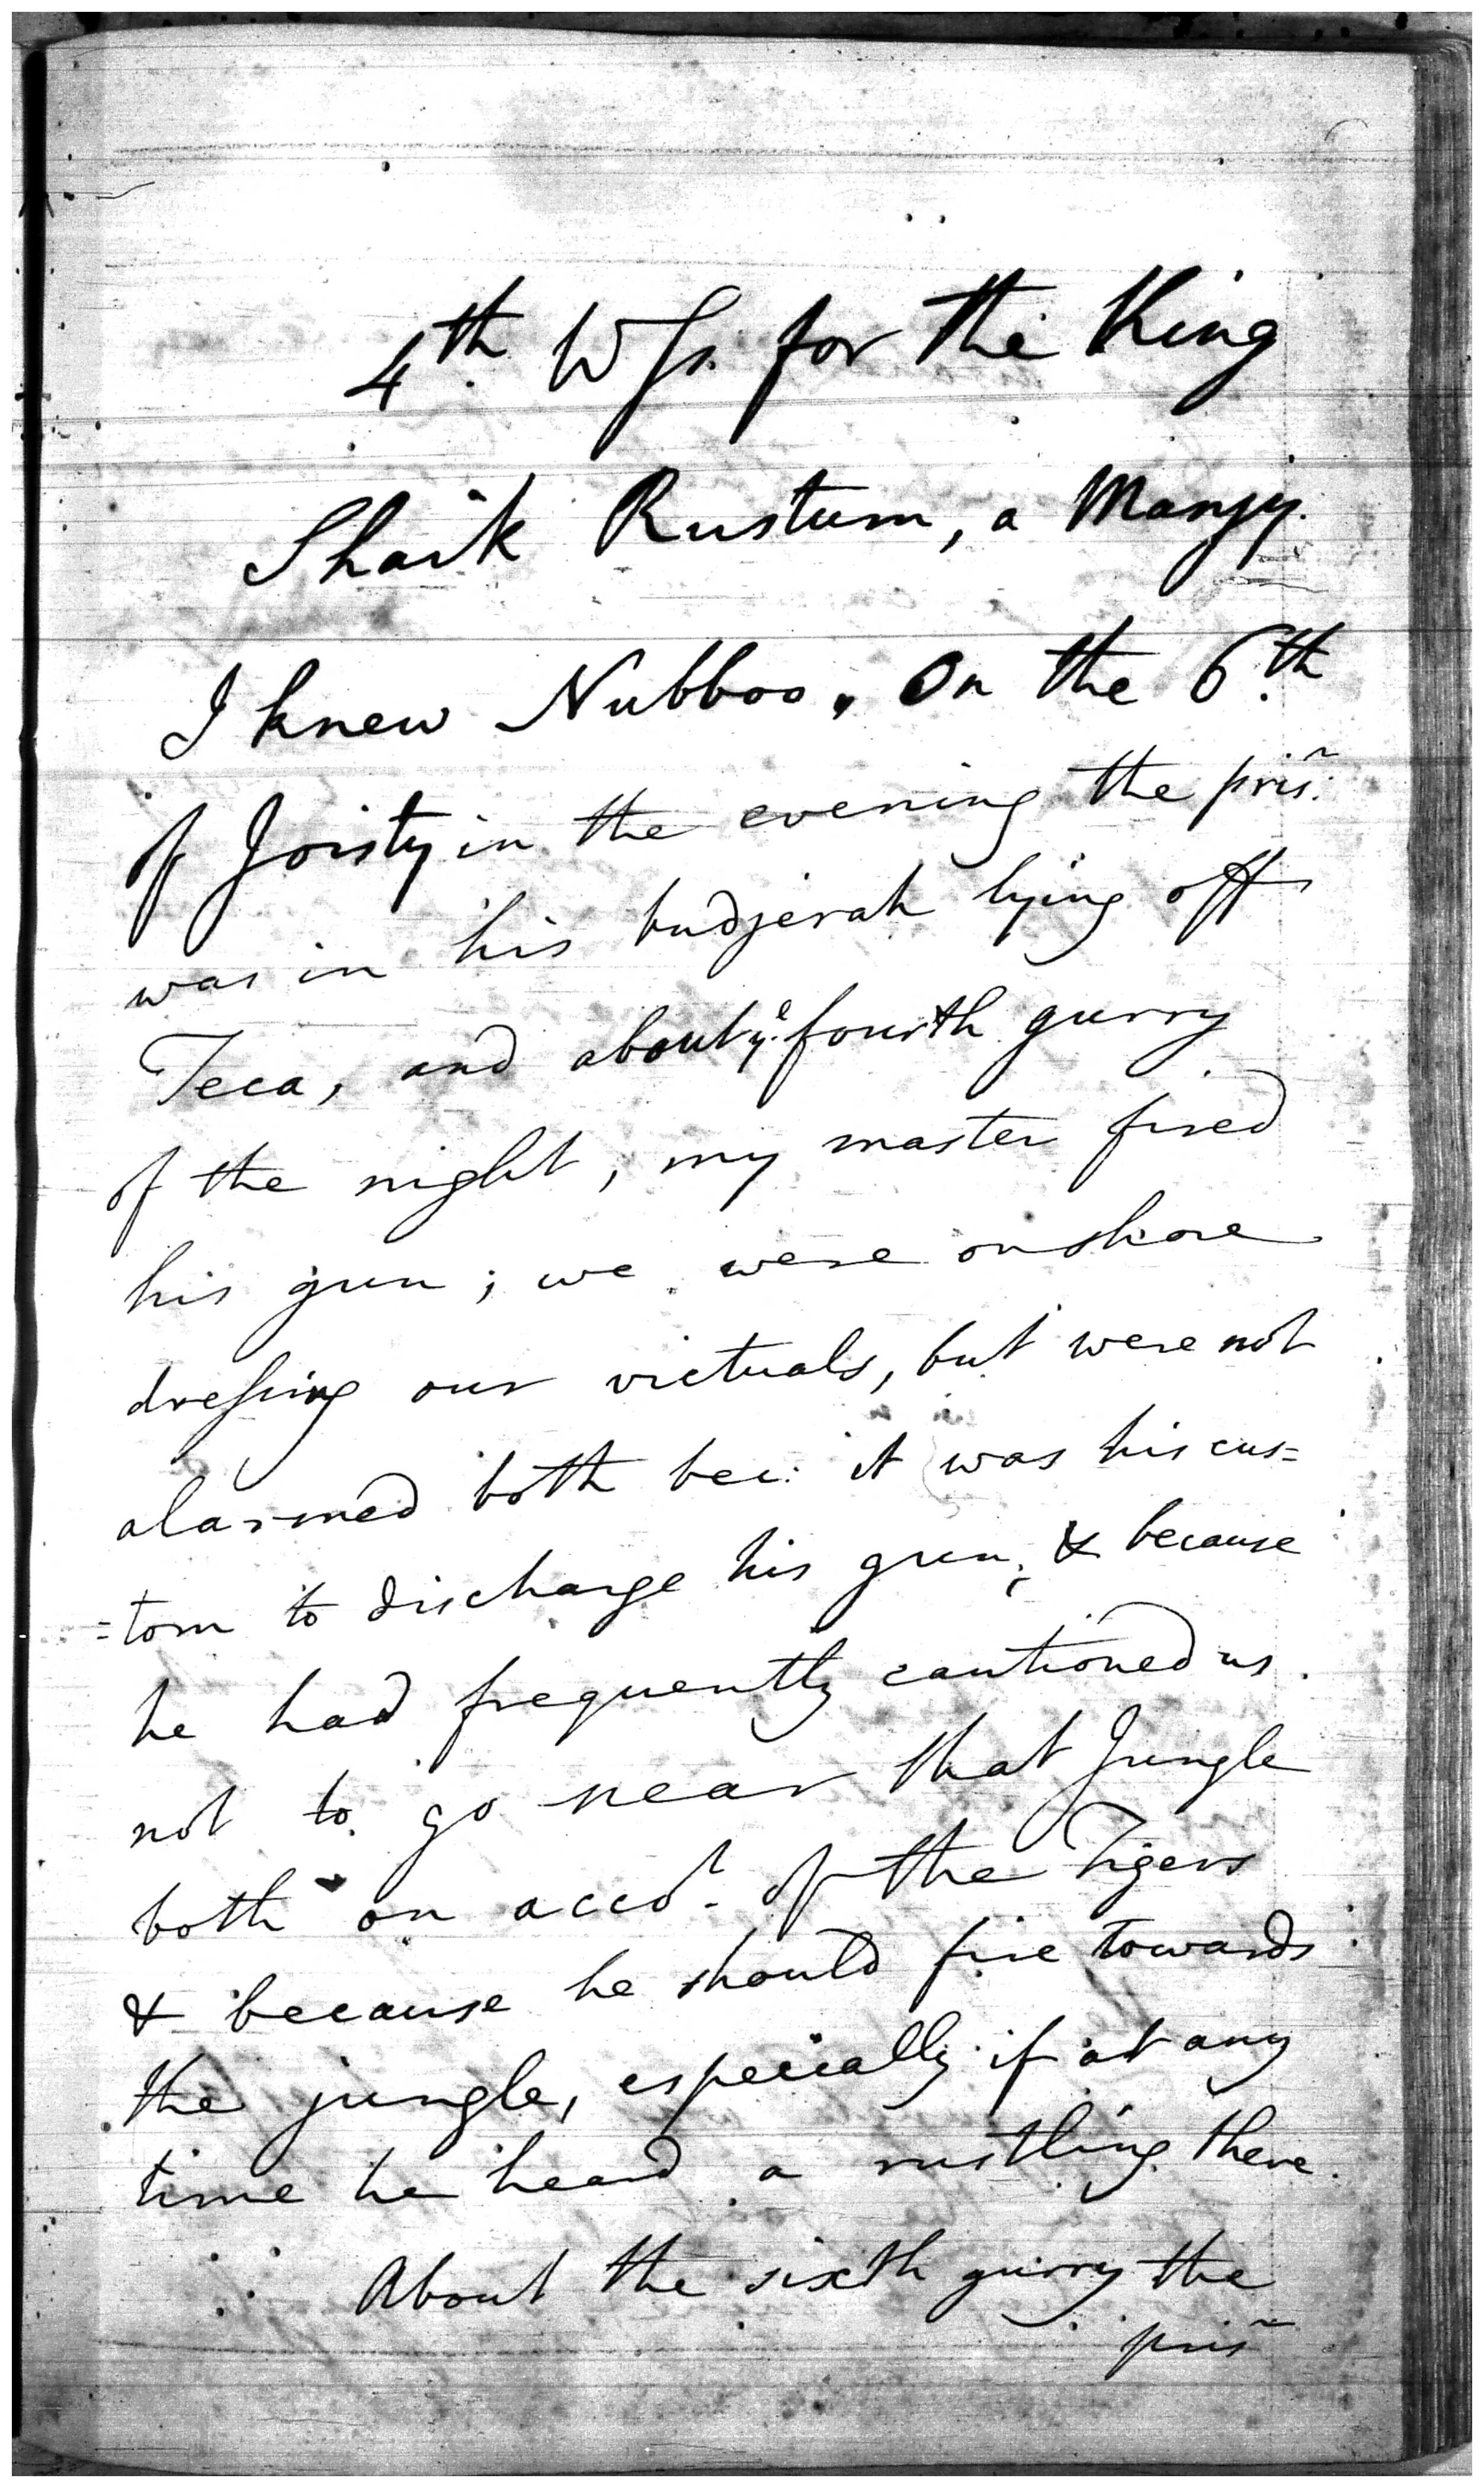 4th. Wſs. for the King
Shaik Rustum, a Manjy.
I knew Nubboo. On the 6th.
of Joisty in the evening the prisr.
was in his budjerah lying off
Teca, and about ye. fourth gurry
of the night, my master fired
his gun; we were on shore
dreſsing our victuals, but were not
alarmed both bec: it was his cus=
=tom to discharge his gun, & because
he had frequently cautioned us
not to go near that Jungle
both on accot. of the Tigers
& because he should fire towards
the jungle, especially if at any
time he heard a rustling there.
About the sixth gurry the
prisr